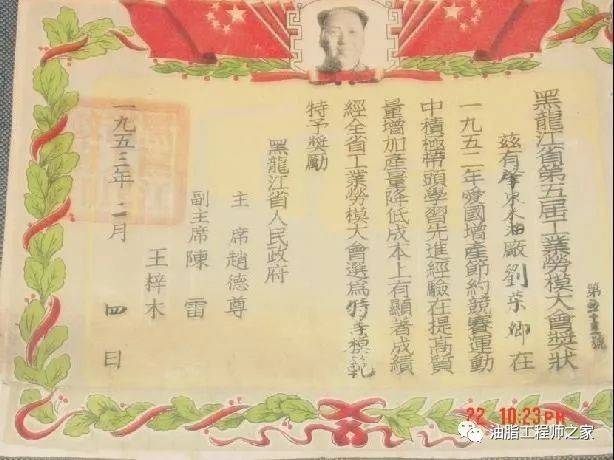 黑龍江省第五届工業勞模大會獎狀
茲有肇東米油廠劉 卿在
一九五二年愛國增產節約競賽運動
中積極帶頭學習先進經驗在提高質
量增加產量降低成本上有顯著成績
經全省工業勞模大會選爲特等模範
特予獎勵
黑龍江省人民政府
主 席 趙德尊
副主席 陳 雷
王梓木
一九五三年 二月 四日
22 10:23 PM
油脂工程师之家